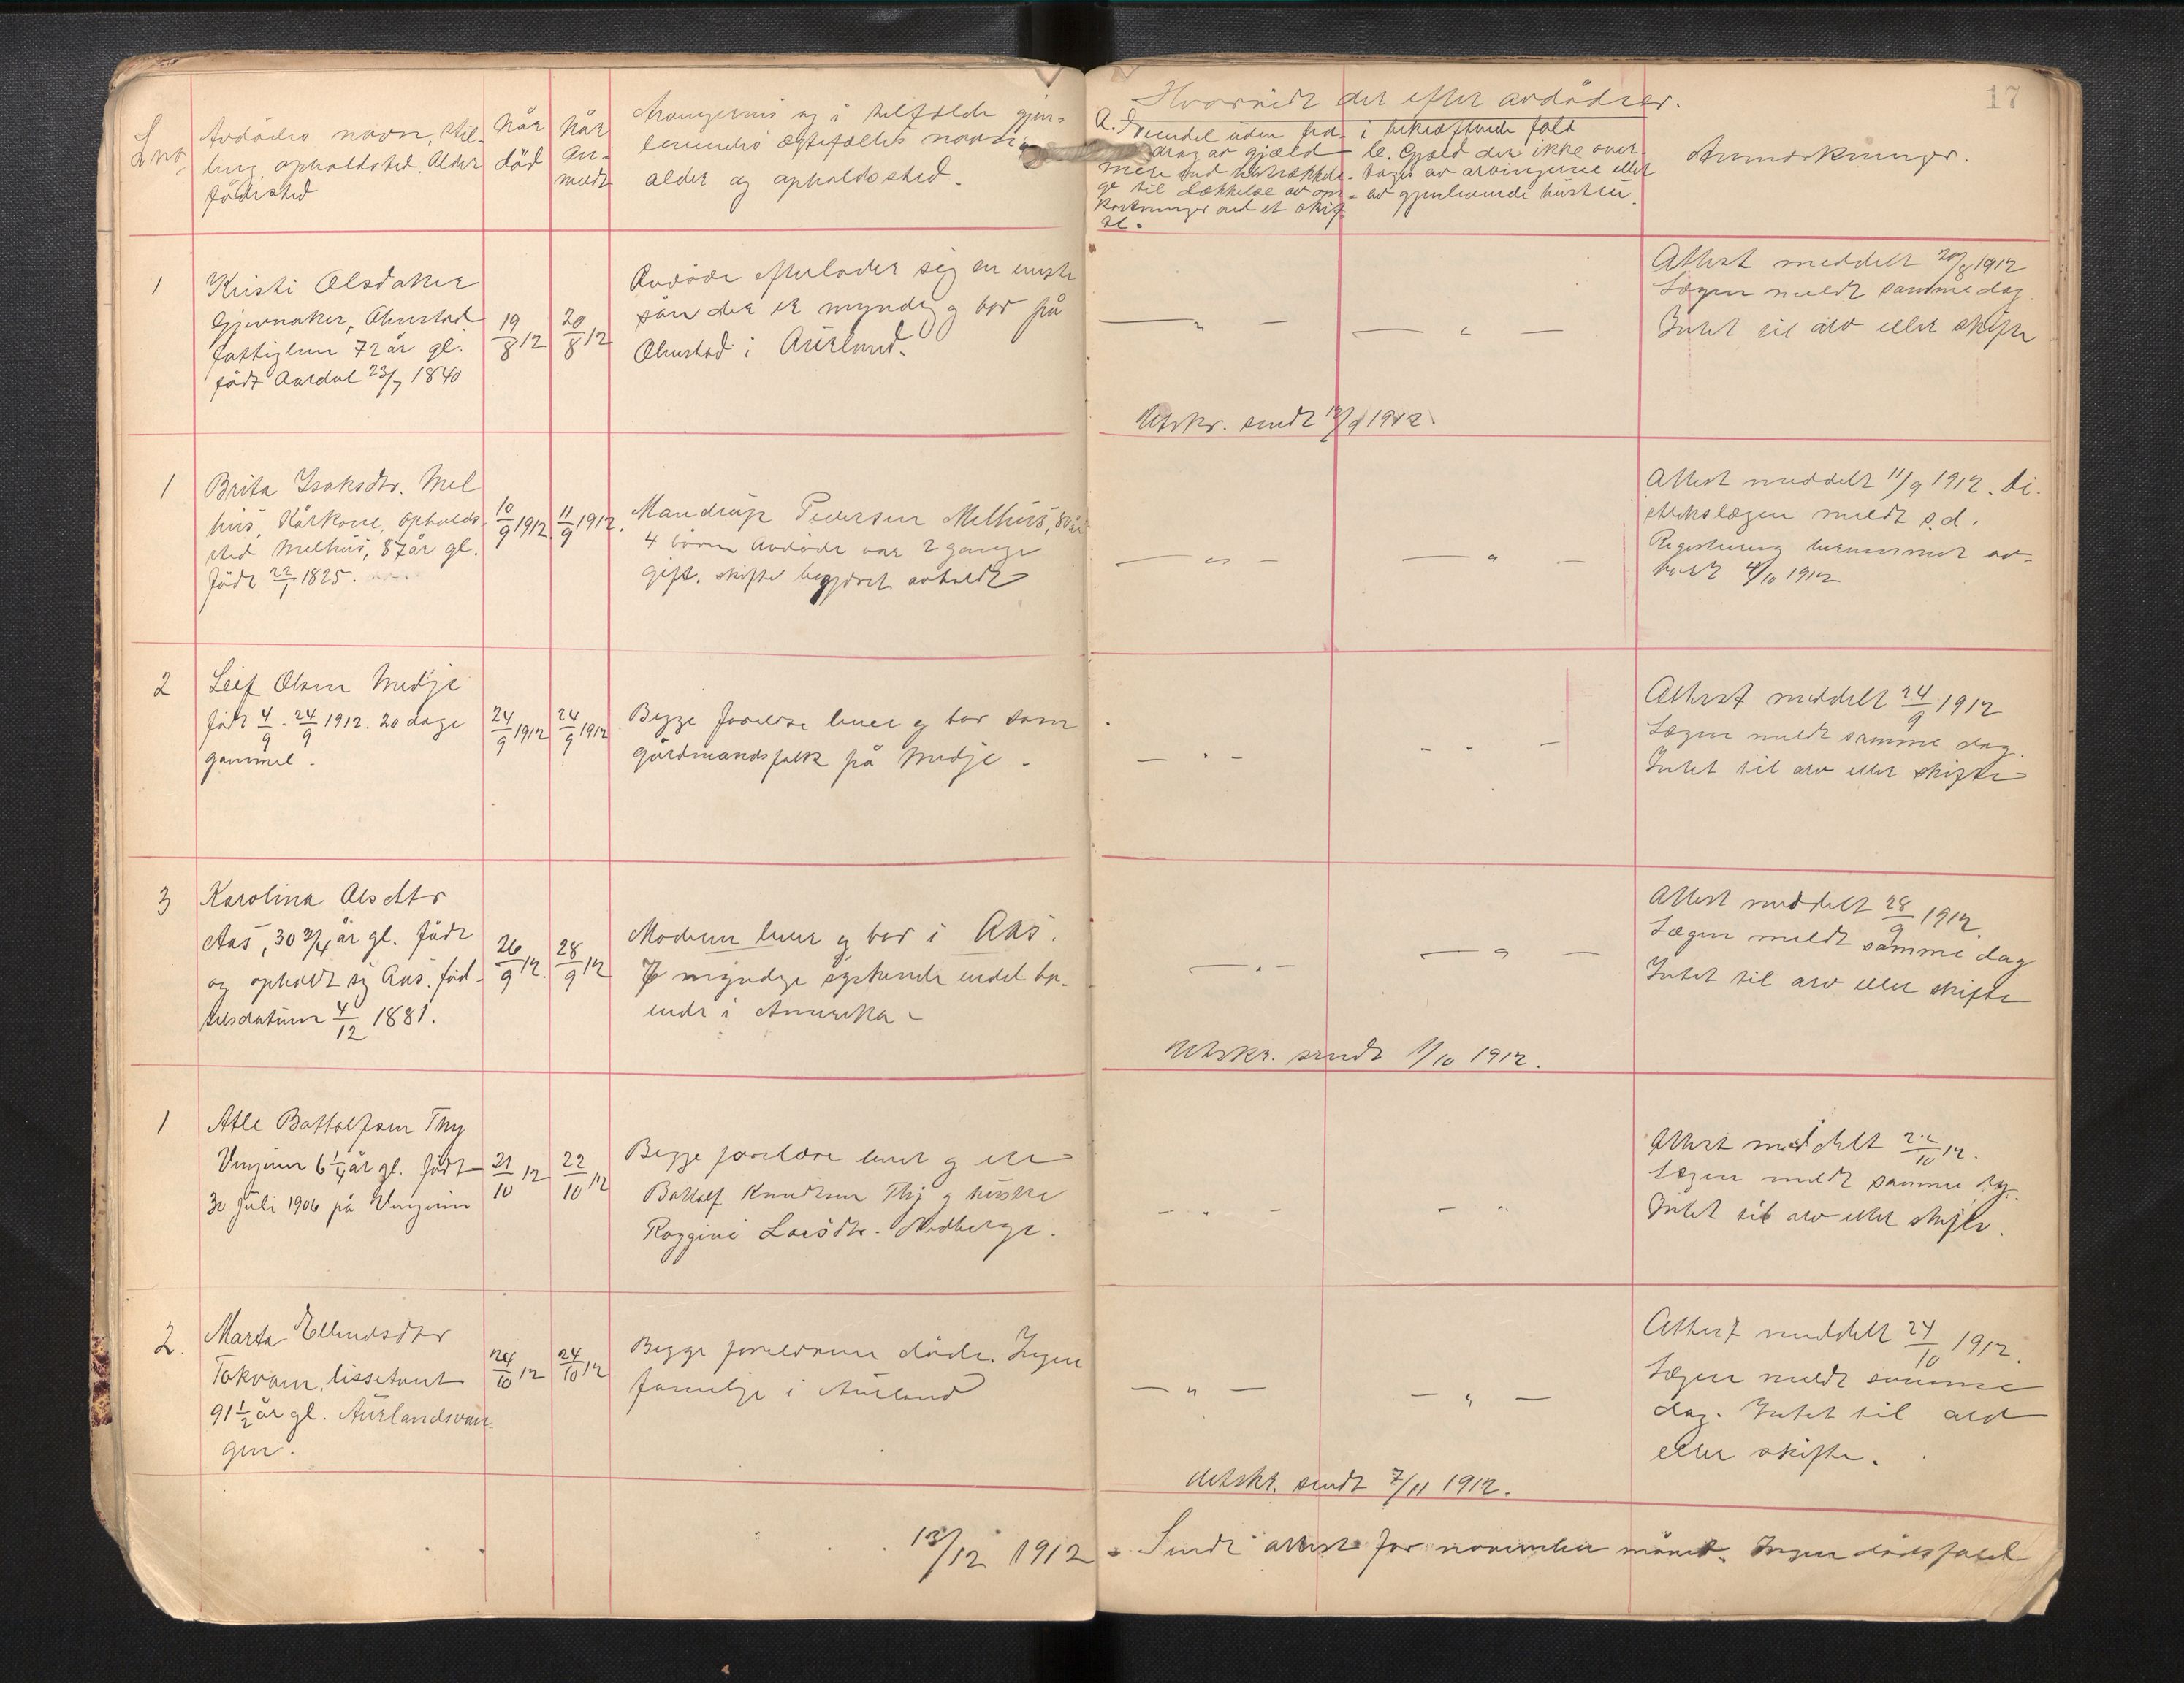 17
L nr.
Avdödes navn, stil-
ling, opholdsted, Alder
födested
Når
död
Når
an-
meldt
Arvingernes og i tilfælde gjen-
levendes ægtefælles navn,
alder og opholdssted.
Hvorvidt der efter avdödser.
A. Formdel uden fra-
drag av gjæld
mere end tilstrækkeli-
ge til dækkelse av om-
kostninger ved et skif-
te.
i bekræftende fald
b. Gjæld der ikke over-
tages av arvingerne eller
av gjenlevende hustru.
Anmærkninger.
1
Kristi Olsdatter
Gjernaker, Ohnstad
fattiglem 72 år gl.
födt Aurdal 23/7 1840
19/8 12
20/8 12
Avdöde efterlader sig en eneste
sön der er myndig og bor på
Ohnstad i Aurland.
— " —
— " —
Attest meddelt 20/8 1912
Lægen meldt samme dag.
Intet til arv eller skifte
Utskr. sendt 12/9 1912.
1
Brita Isaksdtr. Mel
hus, Kårkone, opholds-
sted Melhus, 87 år gl.
Födt 22/1 1825.
10/9 1912
11/9 1912.
Mandrup Pedersen Melhus, 80 år
4 börn Avdöde var 2 gange
gift. skifte begjært avholdt
— " —
— " —
Attest meddelt 11/9 1912. Di-
striktslægen meldt s.d.
Registrering berammet av-
holdt 4/10 1912
2
Leif Olsen Midje
födt 4/9 - 24/9 1912. 20 dage
gammel.
24/9 1912
24/9 1912
Begge forældre lever og bor som
gårdmandsfolk på Midje.
— " —
— " —
Attest meddelt 24/9 1912
Lægen meldt samme dag.
Intet til arv eller skifte
3
Karolina Olsdtr
Aas, 30 3/4 år gl. födt
og opholdt sig Aas. föd-
selsdatum 4/12 1881.
26/9 12.
28/9 12
Moderen lever og bor i Aas.
7 myndige syskende endel bo-
ende i Amerika
— " —
— " —
Attest meddelt 28/9 1912.
Lægen meldt samme dag
Intet til arv eller skifte
Utskr. sendt 1/10 1912.
1
Atle Bottolfsen Thy
Vinjum 6 1/4 år gl. födt
30 Juli 1906 på Vinjum
21/10 12
22/10 12
Begge forældre lever og er
Bottolf Knudsen Thy og hustru
Roggine Larsdtr. Nedberge.
— " —
— "
Attest meddelt 22/10 12.
Lægen meldt samme dag.
Intet til arv eller skifte.
2.
Marta Ellendsdtr
Tokvam, lissetant
91 1/2 år gl. Aurlandsvan-
gen.
24/10 12
24/10 12
Begge forældrene döde. Ingen
familje i Aurland
— " —
— " —
Attest meddelt 24/10 1912.
Lægen meldt samme
dag. Intet til arv
eller skifte.
Utskr. sendt 7/11 1912.
13/12 1912 - Sendt attest for november måned. Ingen dödsfald